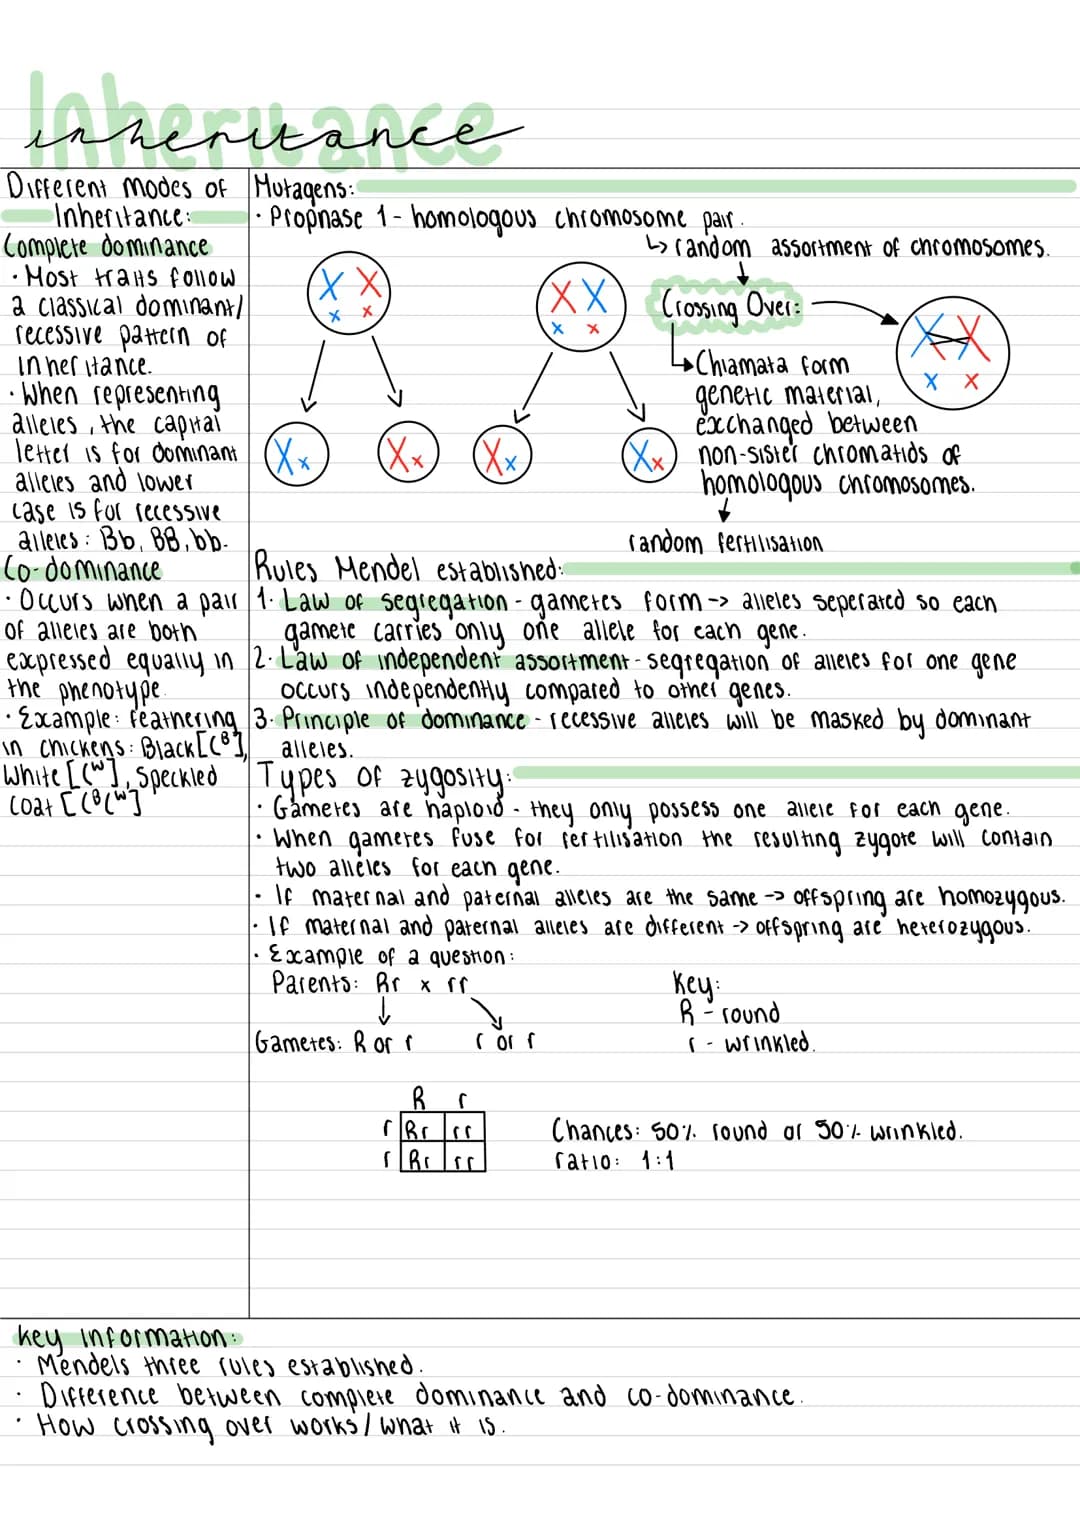 Inheritance
inheritance
Different modes of
Inheritance:
Complete dominance
· Most traits follow
a classical dominant/
recessive pattern of
inheritance.
· When representing
alleles, the capital
letter is for dominant
alleles and lower
case is for recessive
alleles: Bb, BB, bb.
Co-dominance
· Occurs when a pair
of alleles are both
expressed equally in
the phenotype.
· Example: feathering
in chickens: Black[(ᴮ],
White[(ᵂ], Speckled
coat [(ᴮ(ᵂ]
Mutagens:
· Prophase 1 - homologous chromosome pair.
↳ random assortment of chromosomes.
Crossing Over:
↳ Chiamata form
genetic material,
exchanged between
non-sister chromatids of
homologous chromosomes.
random fertilisation
Rules Mendel established:
1. Law of segregation - gametes form -> alleles seperated so each
gamete carries only one allele for each gene.
2. Law of independent assortment - segregation of alleles for one gene
occurs independently compared to other genes.
3. Principle of dominance - recessive alleles will be masked by dominant
alleles.
Types of zygosity:
· Gametes are haploid - they only possess one allele for each gene.
· When gametes fuse for fertilisation the resulting zygote will contain
two alleles for each gene.
· If maternal and paternal alleles are the same -> offspring are homozygous.
· If maternal and paternal alleles are different -> offspring are heterozygous.
· Example of a question:
Parents: Rr x rr
Gametes: R or r r or r
Key:
R - round
r - wrinkled.
R r
r Rr rr
r Rr rr
Chances: 50% round or 50% wrinkled.
ratio: 1:1
key information:
· Mendels three rules established.
· Difference between complete dominance and co-dominance.
· How crossing over works/what it is.